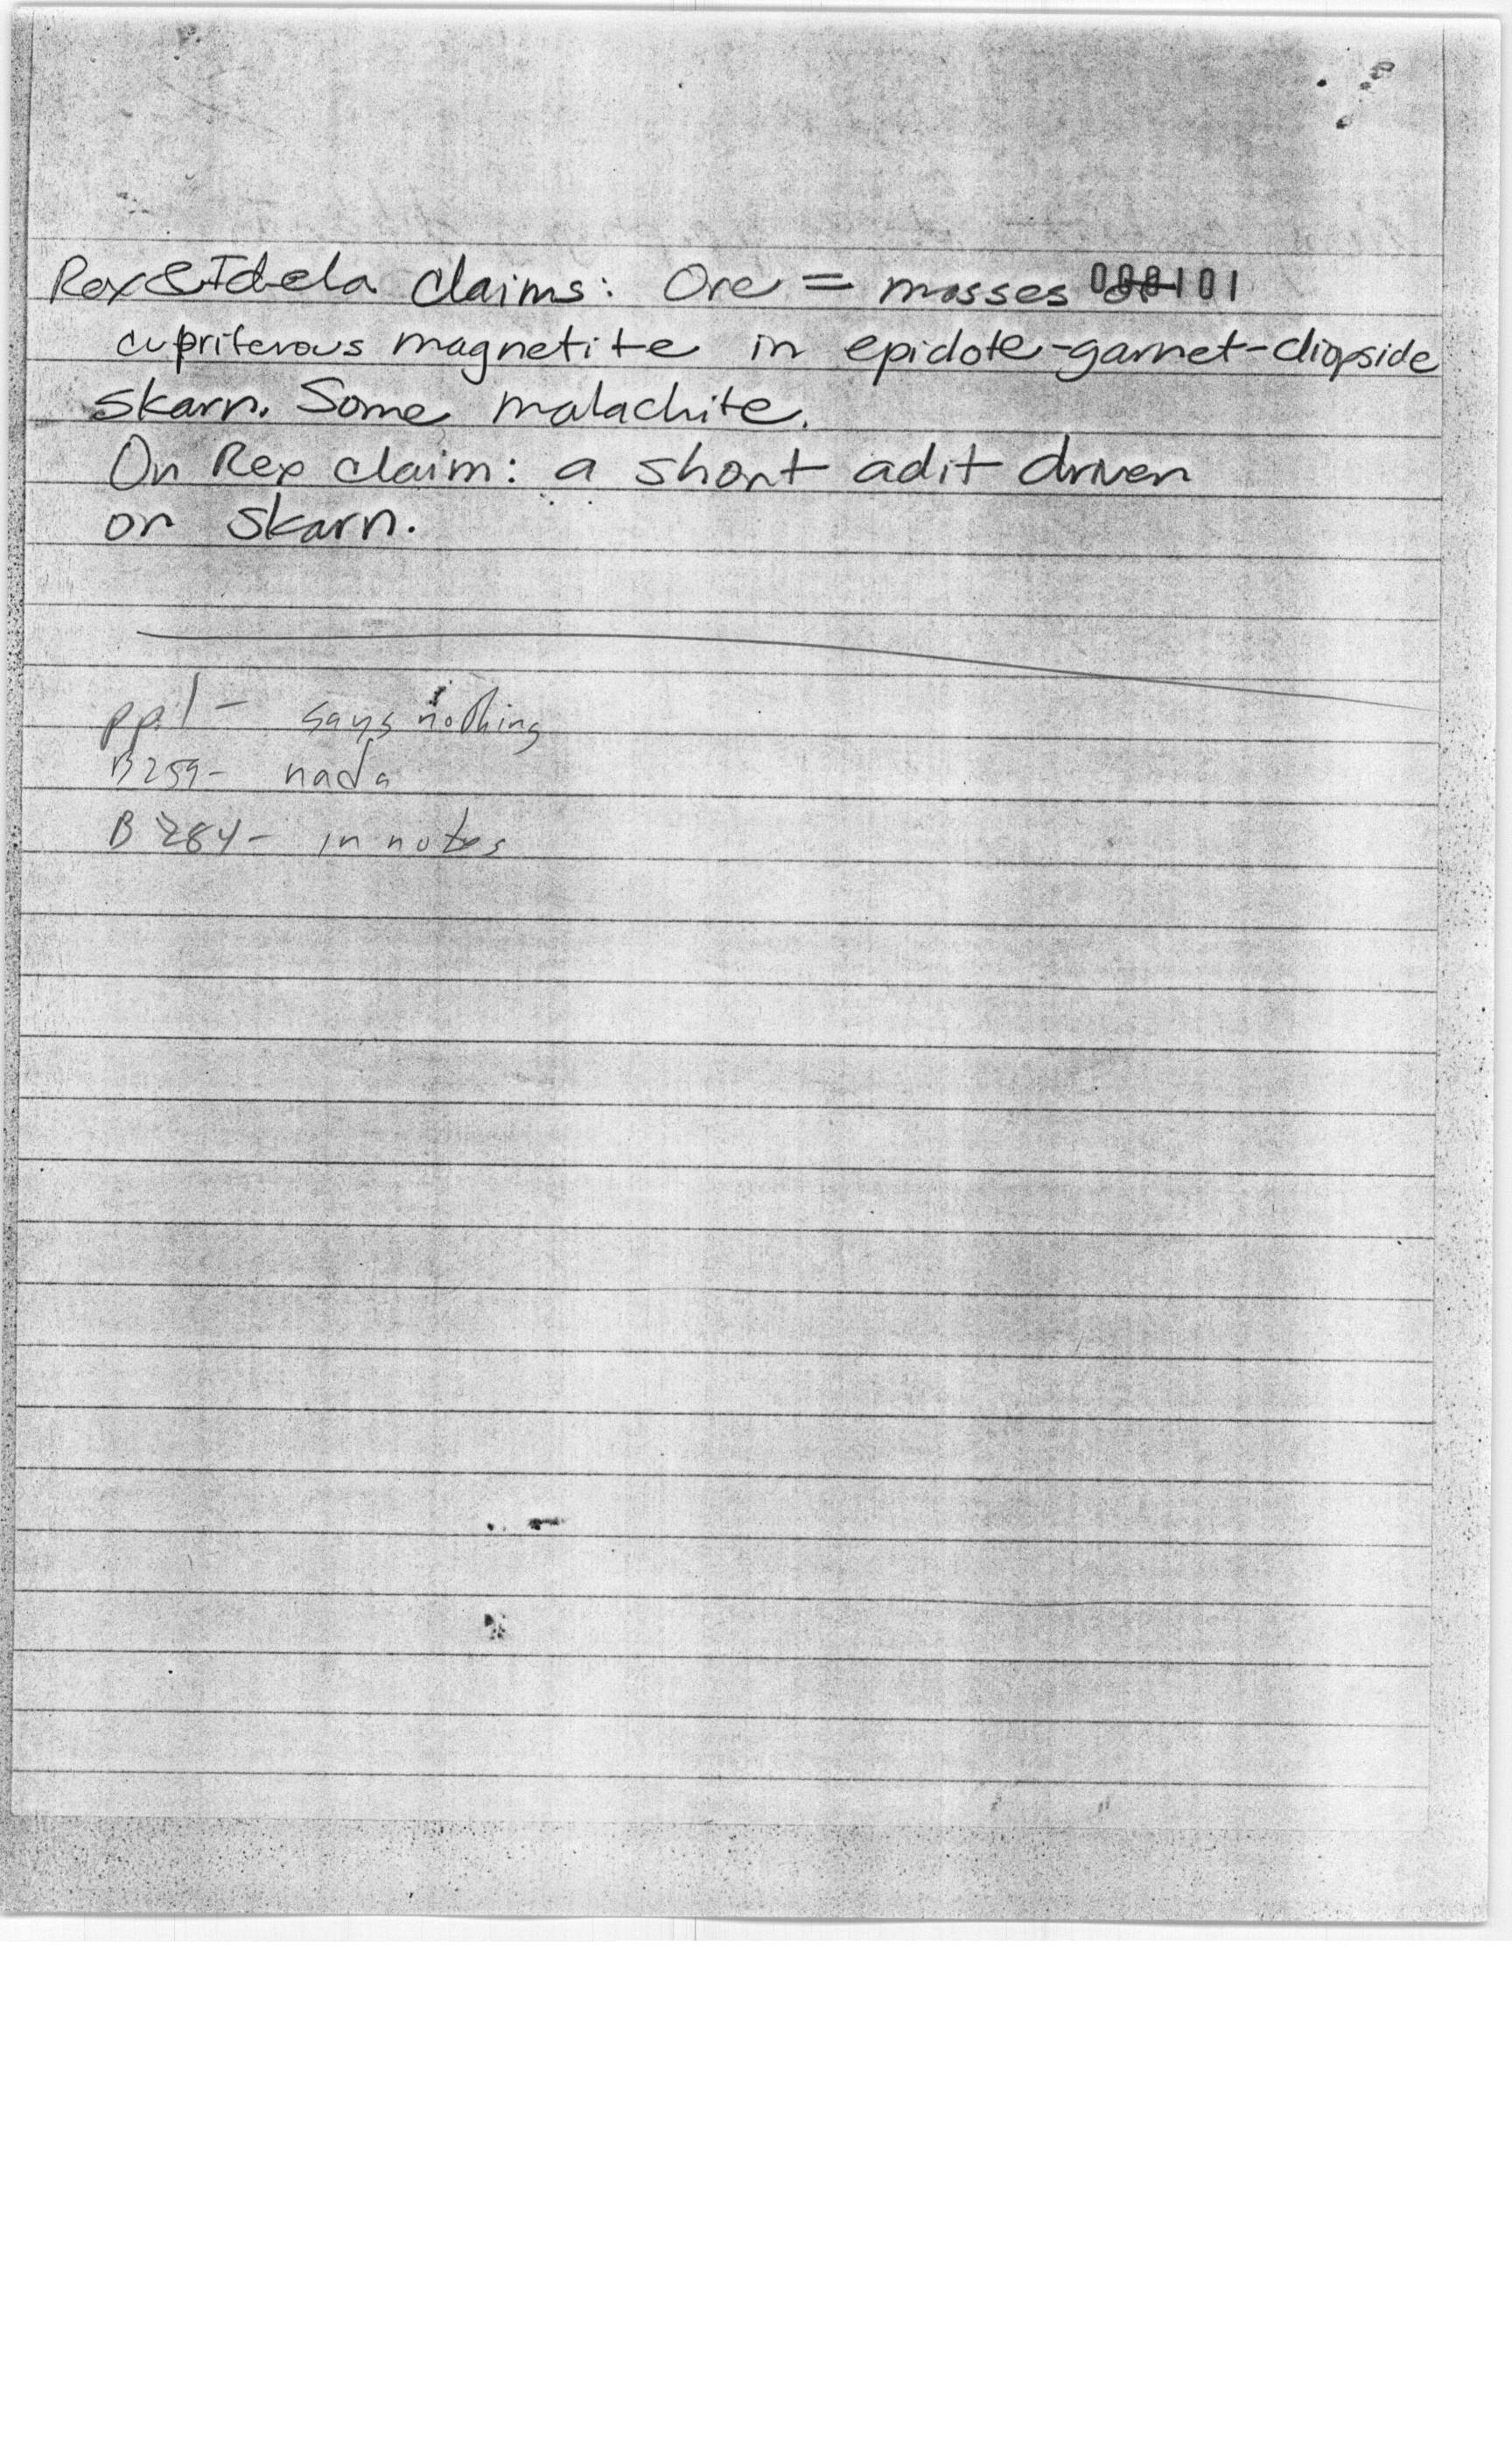 Rex & Idela claims: Ore = masses of 000101
cupriferous magnetite in epidote-garnet-diopside
skarn. Some malachite.
On Rex claim: a short adit driven
on skarn.
pp1 - says nothing
B259- nada
B 284- in notes